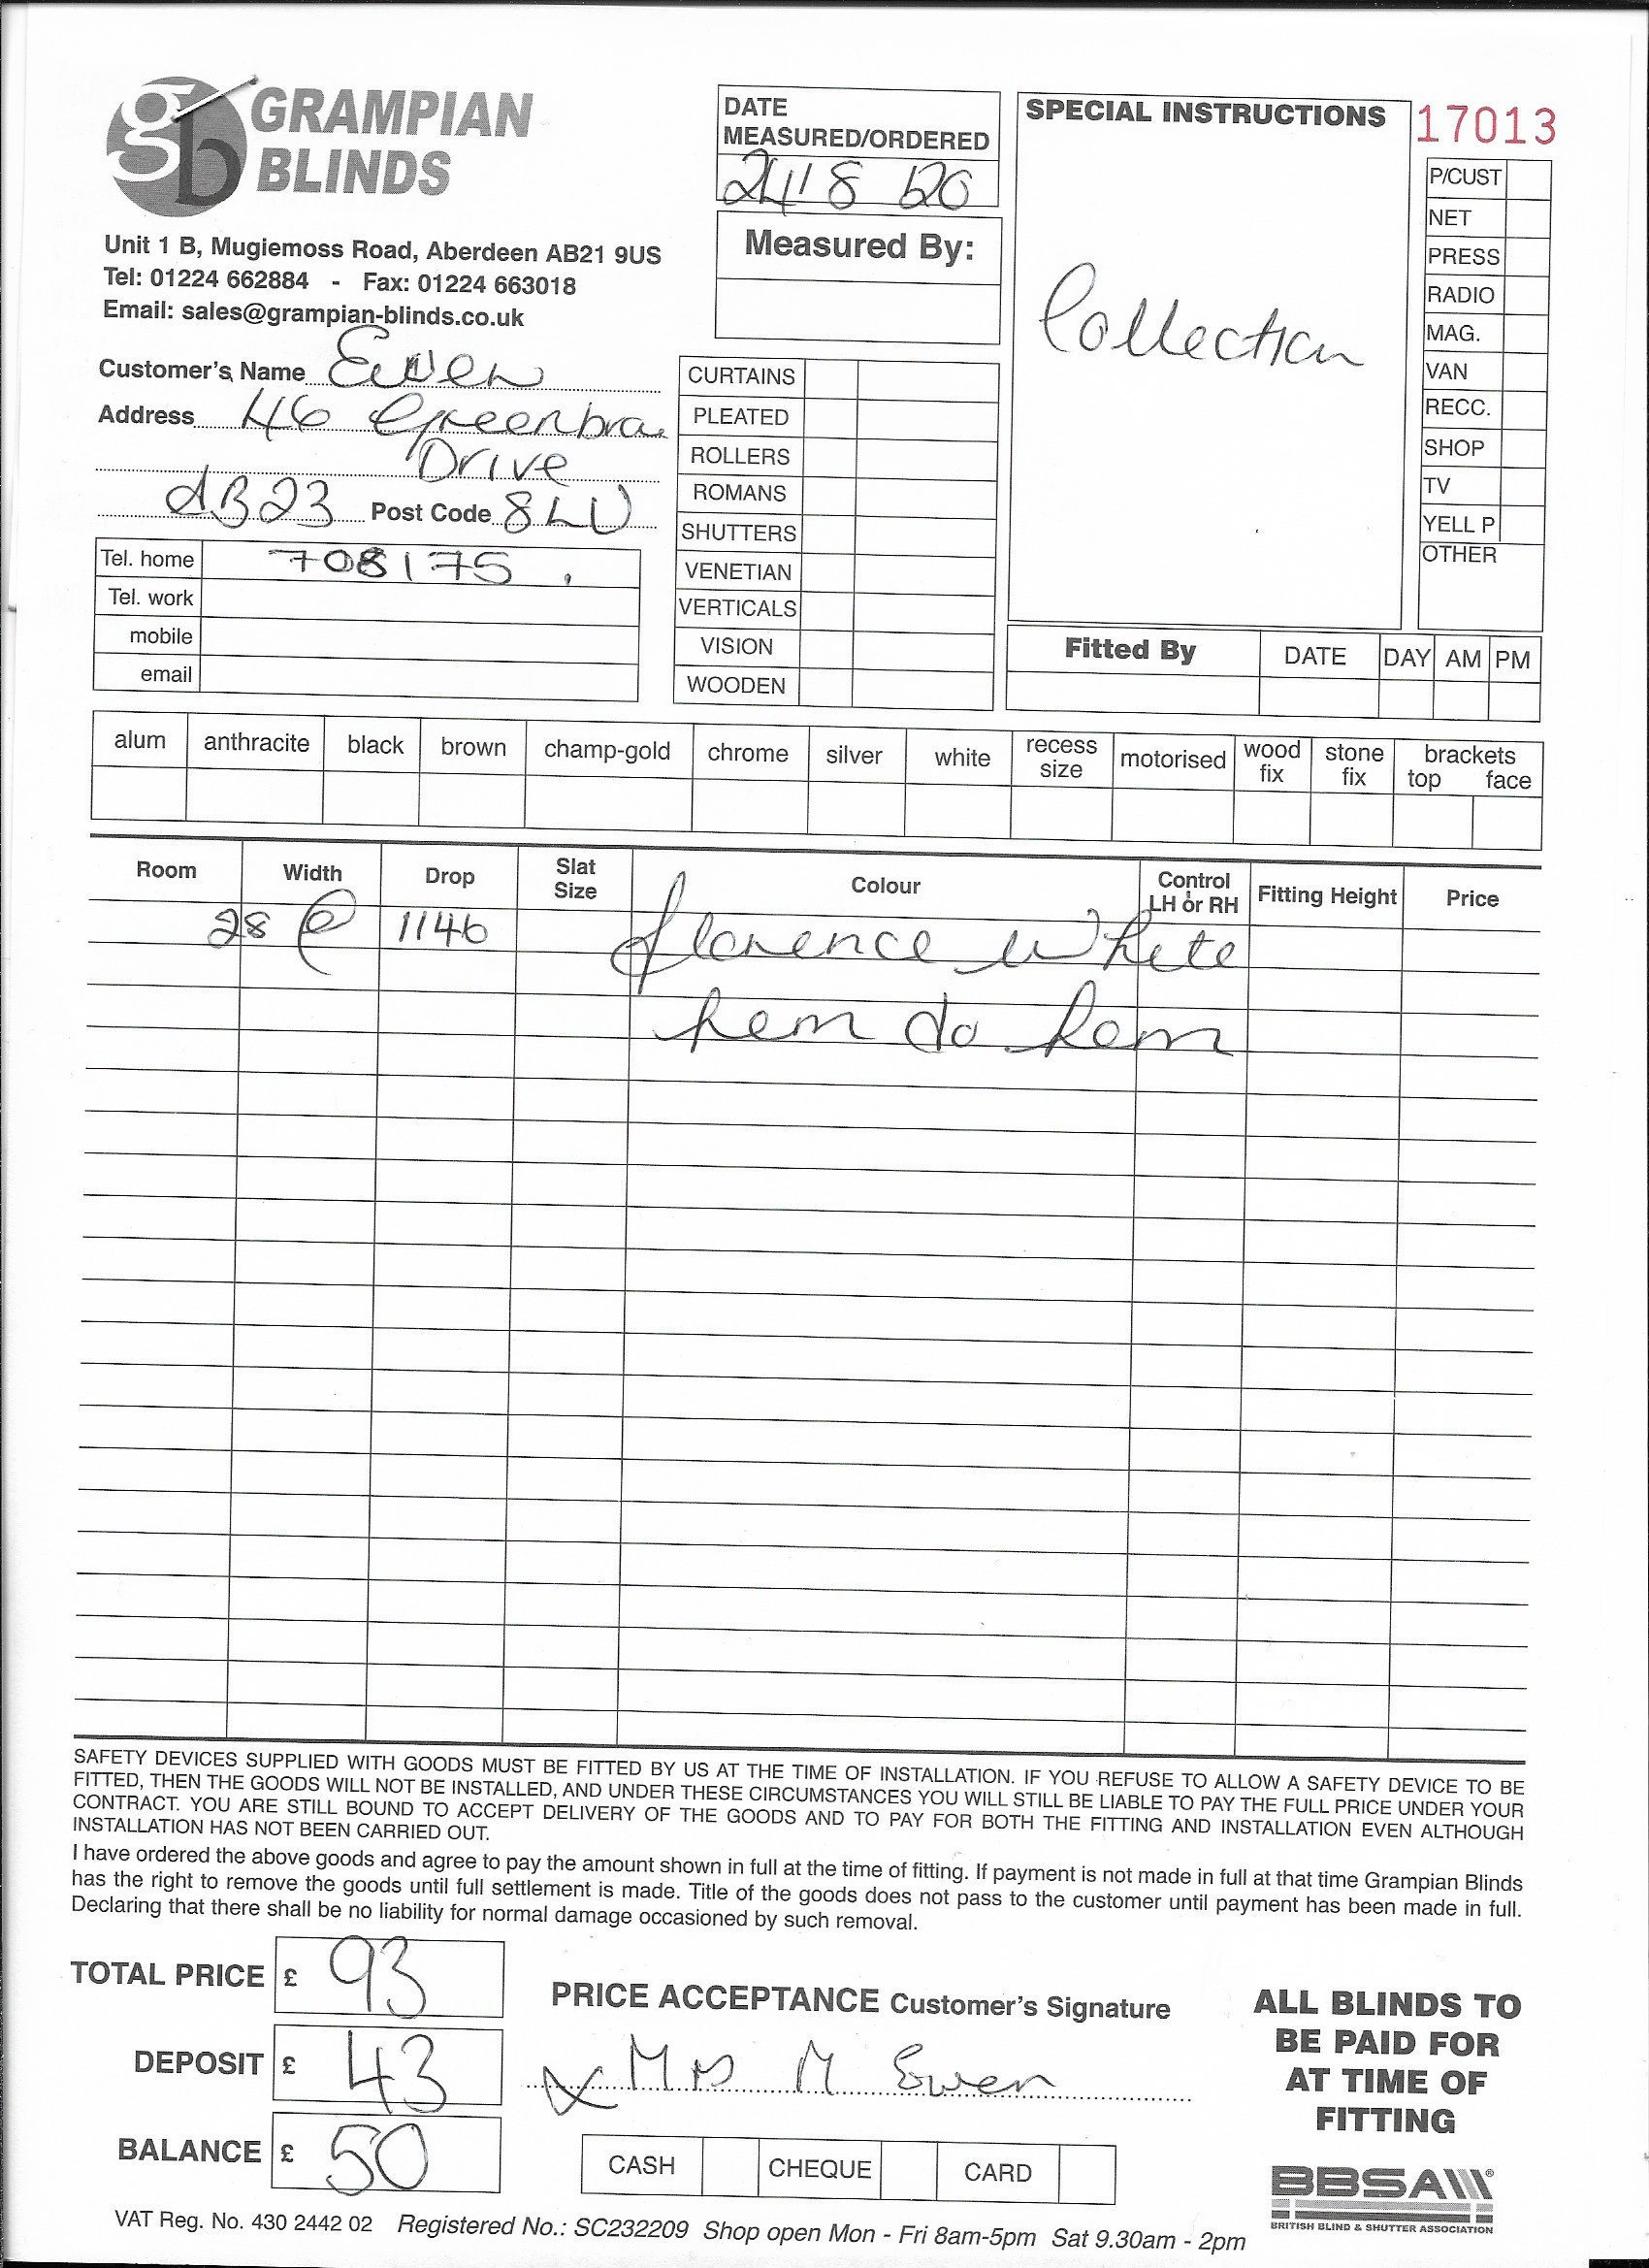 GRAMPIAN
BLINDS
Unit 1 B, Mugiemoss Road, Aberdeen AB21 9US
Tel: 01224 662884 - Fax: 01224 663018
Email: sales@grampian-blinds.co.uk
Customer's Name Ewen
Address 46 Greenbrae
Drive
AB23 Post Code 8LU
Tel. home 708175
Tel. work
mobile
email
DATE
MEASURED/ORDERED
24 8 20
Measured By:
CURTAINS
PLEATED
ROLLERS
ROMANS
SHUTTERS
VENETIAN
VERTICALS
VISION
WOODEN
SPECIAL INSTRUCTIONS
Collection
17013
P/CUST
NET
PRESS
RADIO
MAG.
VAN
RECC.
SHOP
TV
YELL P
OTHER
Fitted By DATE DAY AM PM
alum anthracite black brown champ-gold chrome silver white recess size motorised wood fix stone fix brackets top face
Room Width Drop Slat Size Colour Control LH or RH Fitting Height Price
28 @ 1146 florence white
hem to hem
SAFETY DEVICES SUPPLIED WITH GOODS MUST BE FITTED BY US AT THE TIME OF INSTALLATION. IF YOU REFUSE TO ALLOW A SAFETY DEVICE TO BE
FITTED, THEN THE GOODS WILL NOT BE INSTALLED, AND UNDER THESE CIRCUMSTANCES YOU WILL STILL BE LIABLE TO PAY THE FULL PRICE UNDER YOUR
CONTRACT. YOU ARE STILL BOUND TO ACCEPT DELIVERY OF THE GOODS AND TO PAY FOR BOTH THE FITTING AND INSTALLATION EVEN ALTHOUGH
INSTALLATION HAS NOT BEEN CARRIED OUT.
I have ordered the above goods and agree to pay the amount shown in full at the time of fitting. If payment is not made in full at that time Grampian Blinds
has the right to remove the goods until full settlement is made. Title of the goods does not pass to the customer until payment has been made in full.
Declaring that there shall be no liability for normal damage occasioned by such removal.
TOTAL PRICE £ 93
DEPOSIT £ 43
BALANCE £ 50
PRICE ACCEPTANCE Customer's Signature
x Mrs M Ewen
CASH CHEQUE CARD
ALL BLINDS TO
BE PAID FOR
AT TIME OF
FITTING
BBSA
BRITISH BLIND & SHUTTER ASSOCIATION
VAT Reg. No. 430 2442 02 Registered No.: SC232209 Shop open Mon - Fri 8am-5pm Sat 9.30am - 2pm